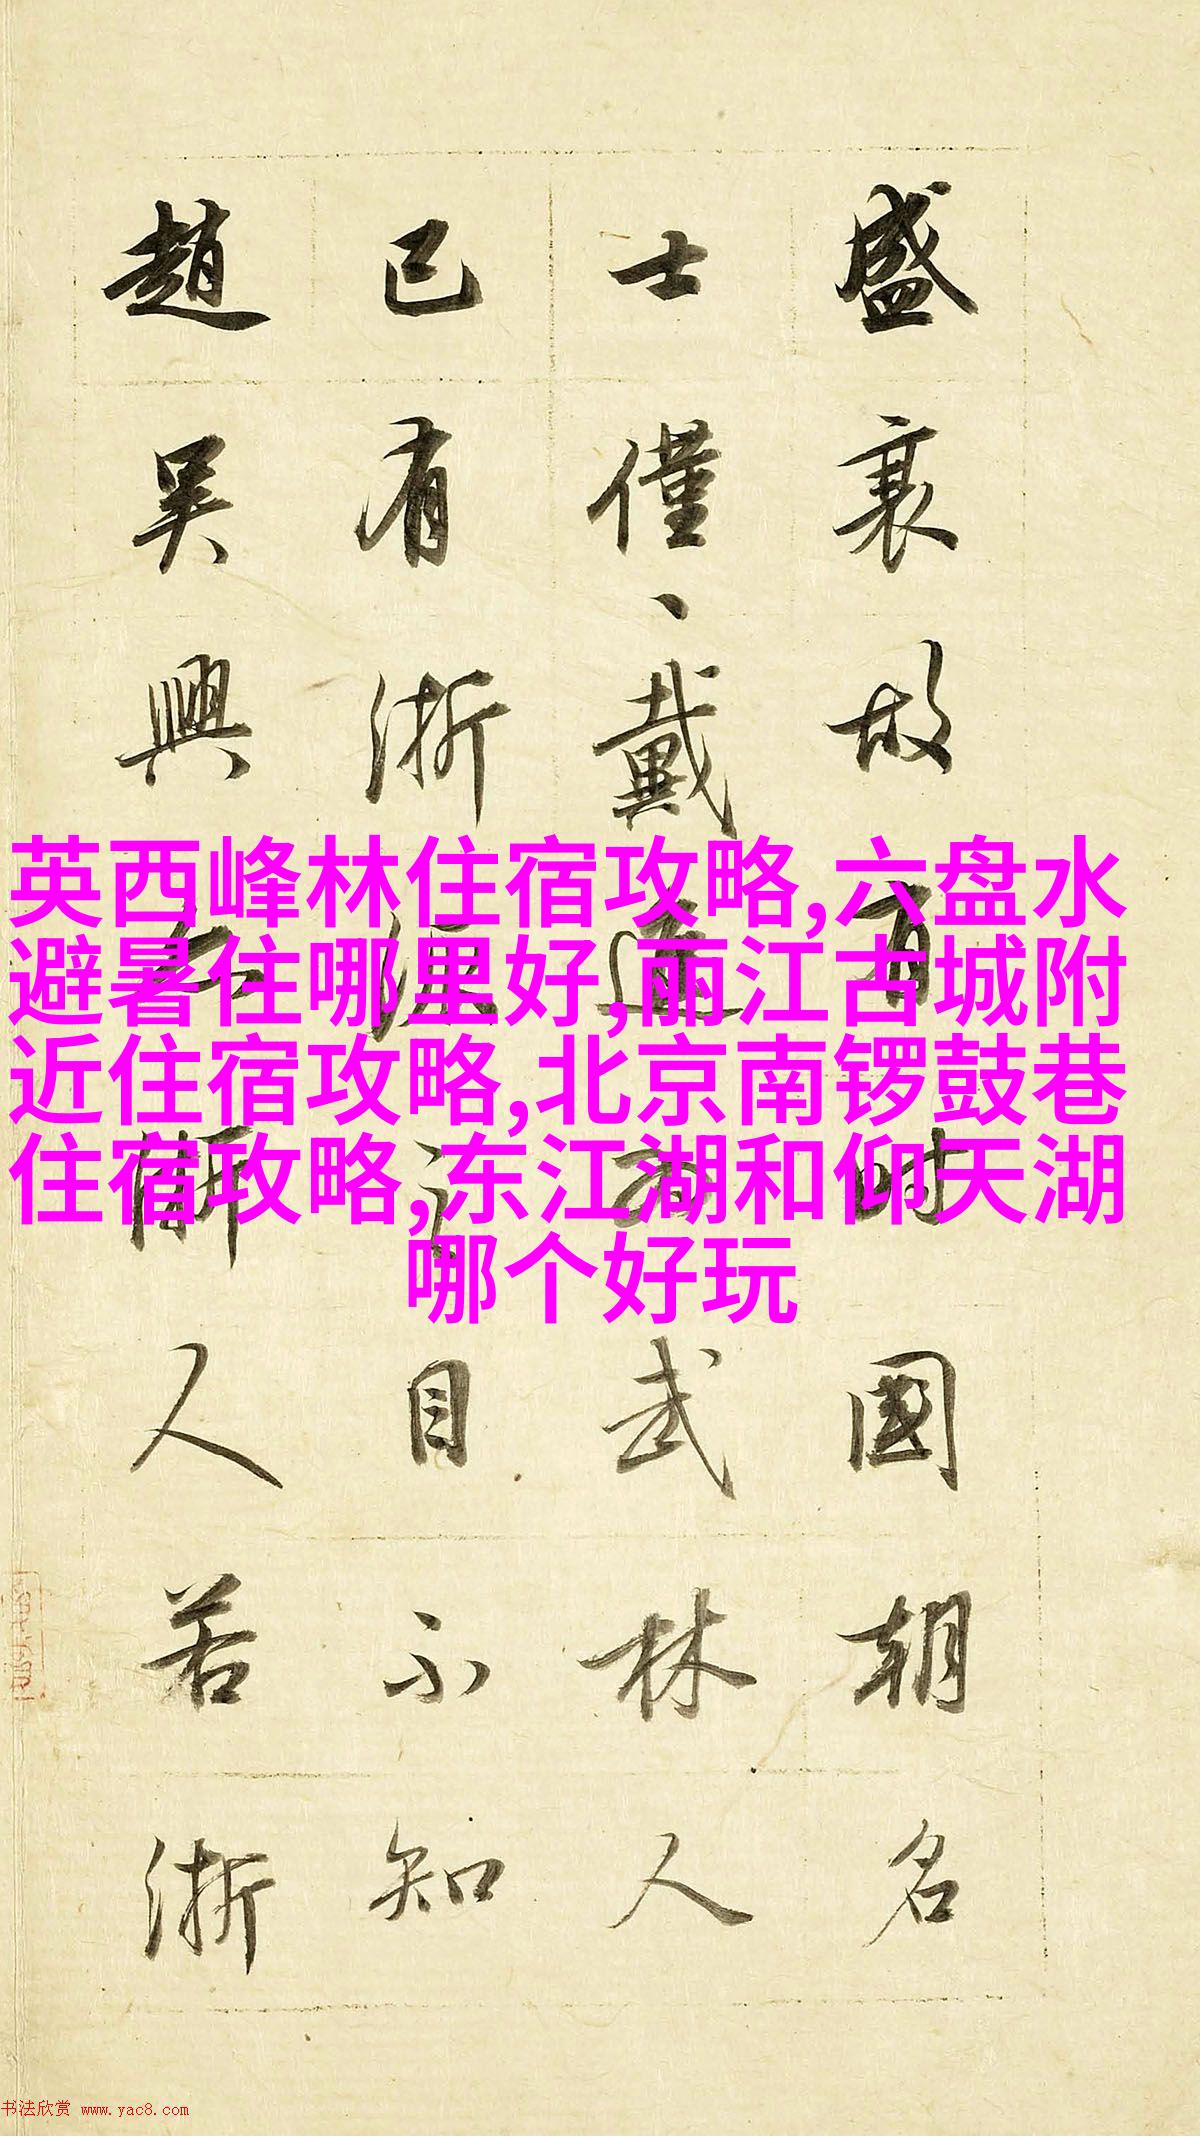 盛衰故有时國朝名
士僅、戴進为武林人
已有浙派之目不知
趙吳興亦浙人若浙
英西峰林住宿攻略,六盘水
避暑住哪里好,丽江古城附
近住宿攻略,北京南锣鼓巷
住宿攻略,东江湖和仰天湖
哪个好玩
书法欣赏 www.yac8.com